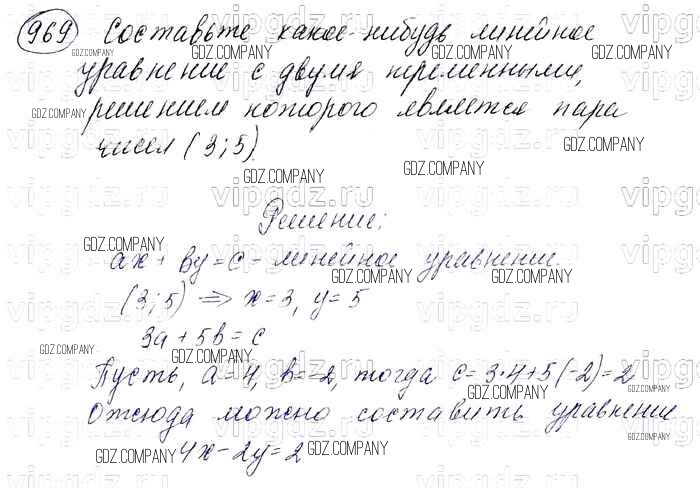 969 Составьте какое-нибудь линейное
уравнение с двумя переменными,
решением которого является пара
чисел (3;5).
Решение:
ax + by = c - линейное уравнение.
(3;5) => x = 3, y = 5
3a + 5b = c
Пусть, a = 4, b = -2, тогда c = 3·4+5(-2) = 2
Отсюда можно составить уравнение
4x - 2y = 2